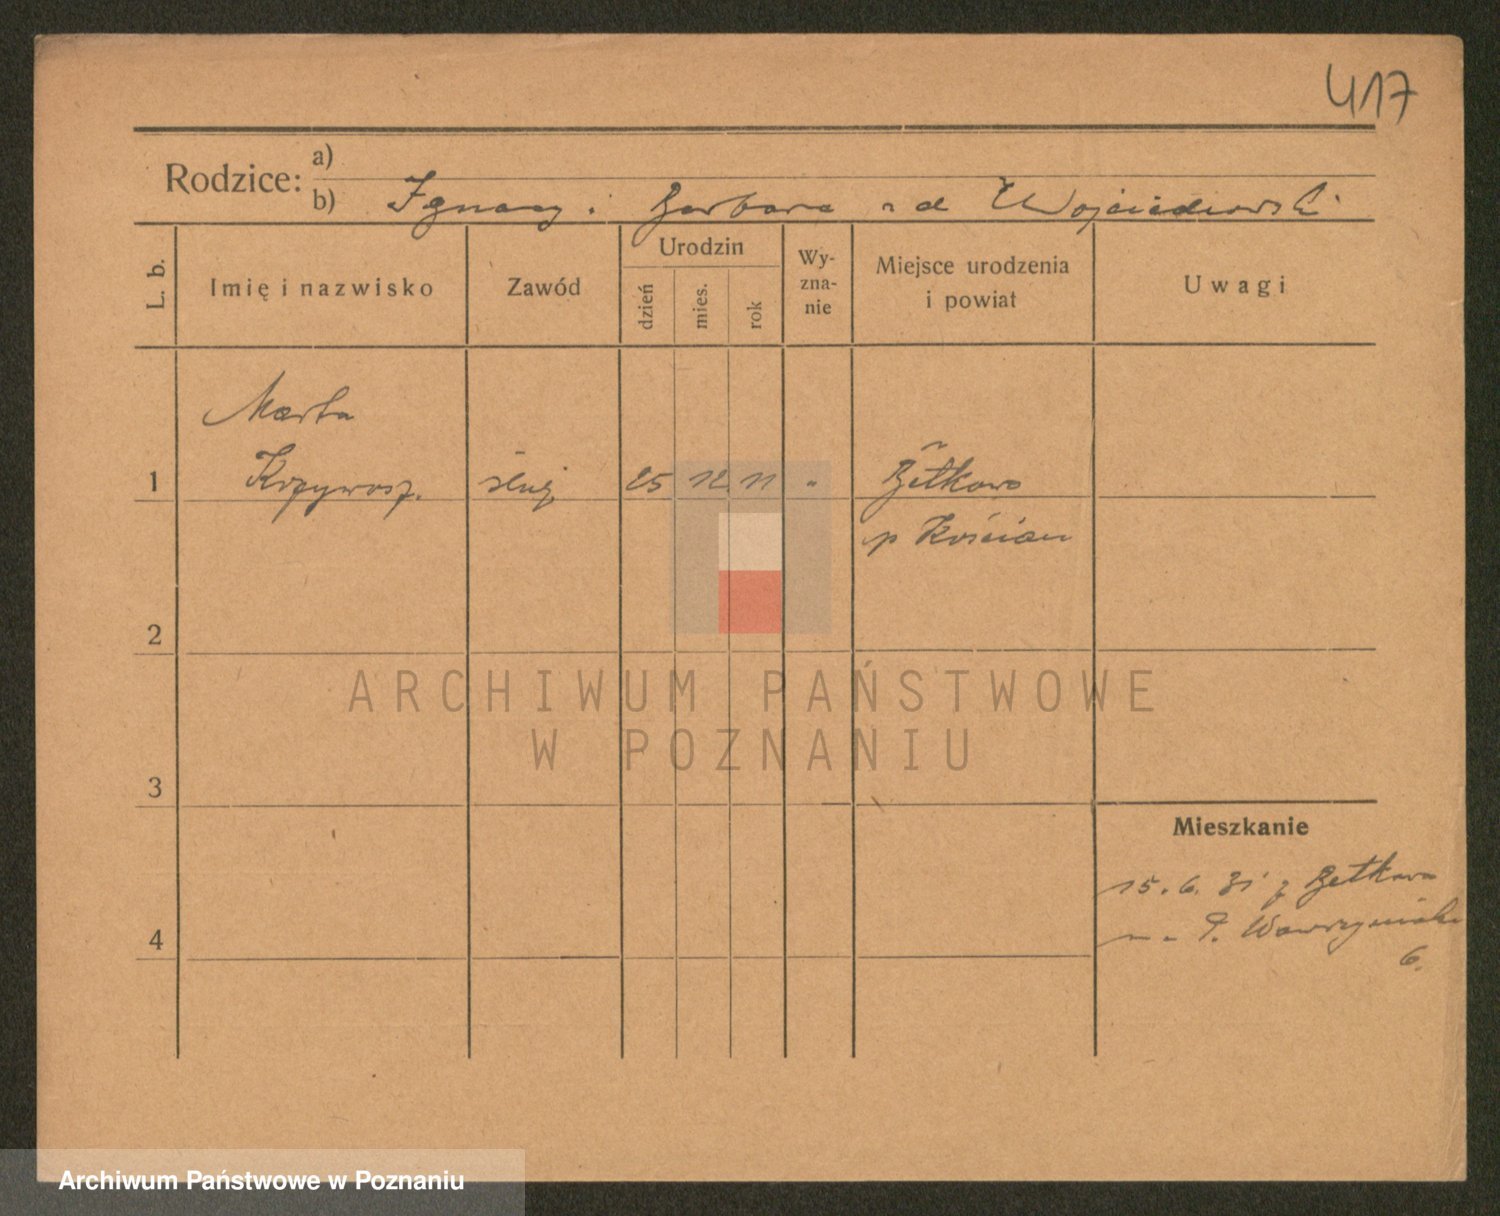 417
Rodzice:
a)
b) Ignacy i Barbara z d Wojciechowski
L. b.
Imię i nazwisko
Zawód
Urodzin
dzień
mies.
rok
Wy-
zna-
nie
Miejsce urodzenia
i powiat
Uwagi
Marta
1 Krzywosz. służ 25 12 11 " Betkowo
p Kościan
2
3
4
Mieszkanie
15. 6. 31 z Betkowo
6.
ARCHIWUM PAŃSTWOWE
W POZNANIU
Archiwum Państwowe w Poznaniu